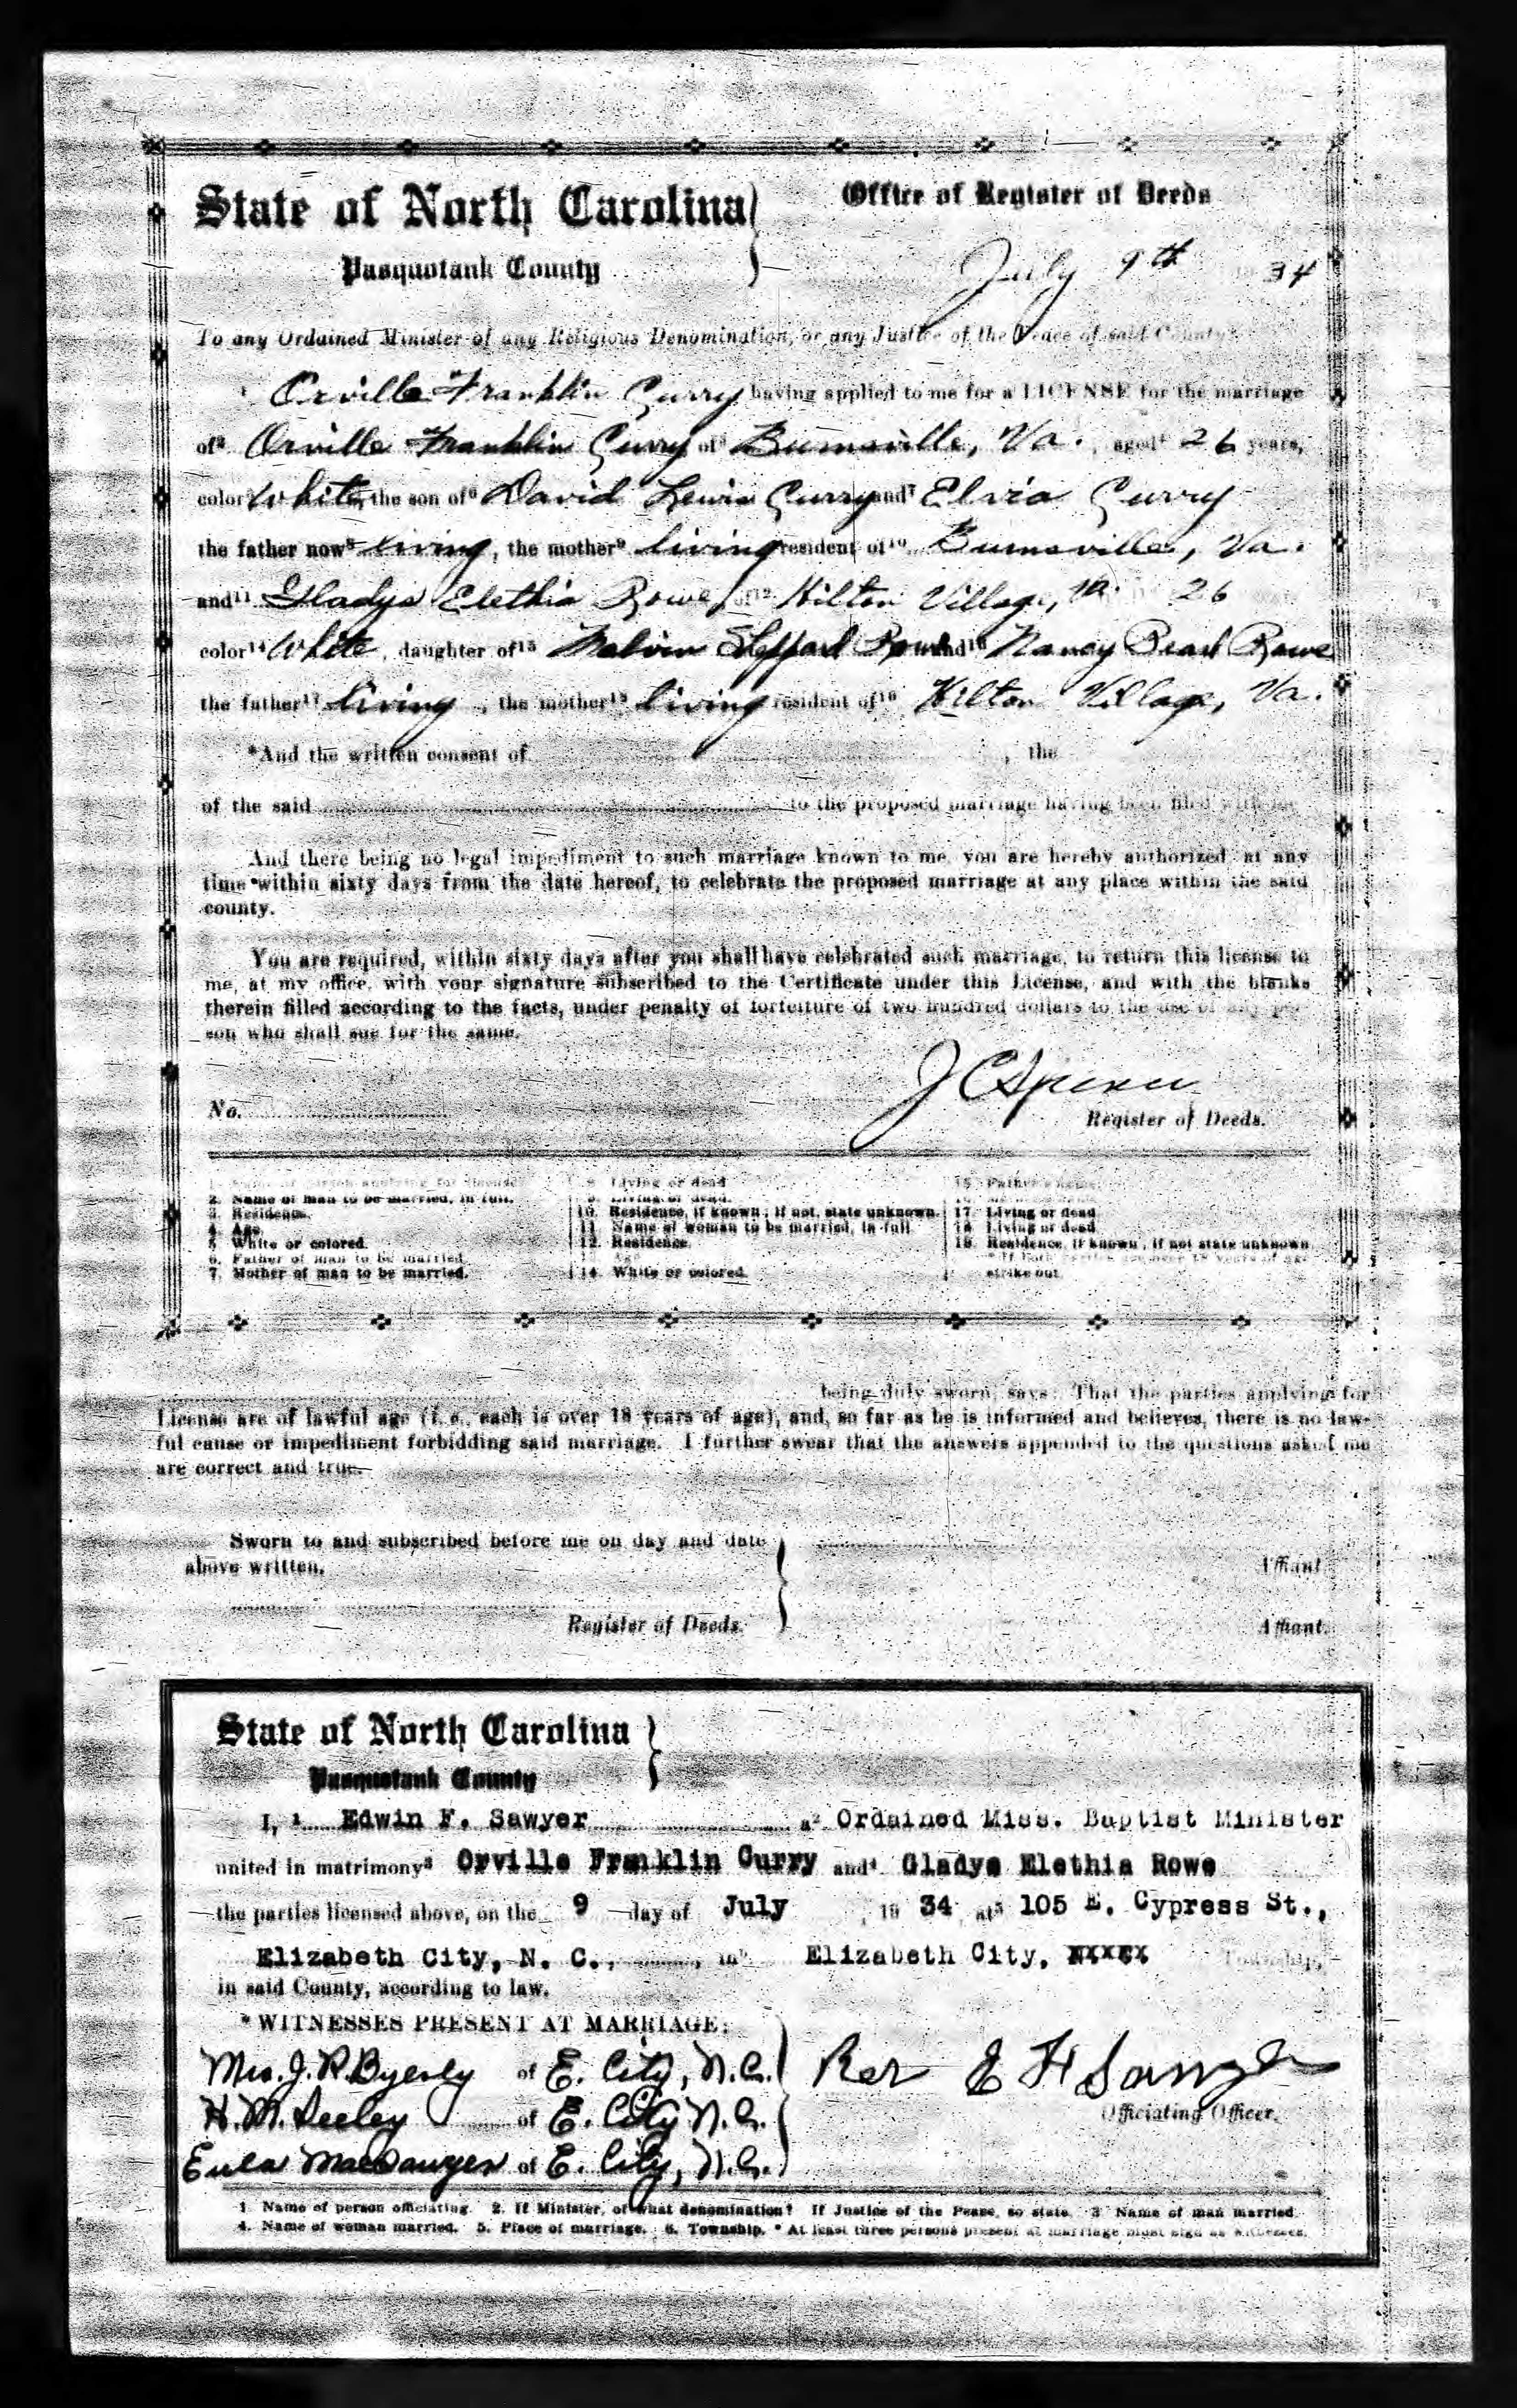 State of North Carolina
Office of Register of Deeds
Pasquotank County
July 9th 34
To any Ordained Minister of any Religious Denomination, or any Justice of the Peace of said County:
Orville Franklin Curry having applied to me for a LICENSE for the marriage
of² Orville Franklin Curry of³ Burnsville, Va., aged⁴ 26 years,
color⁵ White, the son of⁶ David Lewis Curry and⁷ Elvia Curry
the father now⁸ living, the mother⁹ living resident of¹⁰ Burnsville, Va.
and¹¹ Gladys Elethia Rowe of¹² Hilton Village, Va. 26
color¹⁴ White, daughter of¹⁵ Melvin Sheppard Rowe and¹⁶ Nancy Pearl Rowe
the father¹⁷ living, the mother¹⁸ living resident of¹⁹ Hilton Village, Va.
*And the written consent of , the
of the said to the proposed marriage having been filed with me
And there being no legal impediment to such marriage known to me, you are hereby authorized, at any
time within sixty days from the date hereof, to celebrate the proposed marriage at any place within the said
county.
You are required, within sixty days after you shall have celebrated such marriage, to return this license to
me, at my office, with your signature subscribed to the Certificate under this License, and with the blanks
therein filled according to the facts, under penalty of forfeiture of two hundred dollars to the use of any per-
son who shall sue for the same.
J C Spence
No.
Register of Deeds.
1. Name of person applying for license.
2. Name of man to be married, in full.
3. Residence.
4. Age.
5. White or colored.
6. Father of man to be married.
7. Mother of man to be married.
8. Living or dead.
9. Living or dead.
10. Residence, if known; if not, state unknown.
11. Name of woman to be married, in full.
12. Residence.
14. White or colored.
15. Father's name.
17. Living or dead.
18. Living or dead.
19. Residence, if known; if not state unknown.
strike out.
being duly sworn, says: That the parties applying for
License are of lawful age (i. e., each is over 18 years of age), and, so far as he is informed and believes, there is no law-
ful cause or impediment forbidding said marriage. I further swear that the answers appended to the questions asked me
are correct and true.
Sworn to and subscribed before me on day and date
above written.
Affiant
Register of Deeds.
Affiant.
State of North Carolina
Pasquotank County
I, ¹ Edwin F. Sawyer a² Ordained Miss. Baptist Minister
united in matrimony³ Orville Franklin Curry and⁴ Gladys Elethia Rowe
the parties licensed above, on the 9 day of July, 19 34 at⁵ 105 E. Cypress St.,
Elizabeth City, N. C., in⁶ Elizabeth City, xxxxx Township,
in said County, according to law.
*WITNESSES PRESENT AT MARRIAGE:
Mrs. J. R. Byerly of E. City, N.C.
Rev E F Sawyer
H. M. Seeley of E. City N.C.
Officiating Officer.
Eula Mae Sawyer of E. City, N.C.
1. Name of person officiating. 2. If Minister, of what denomination? If Justice of the Peace, so state. 3 Name of man married.
4. Name of woman married. 5. Place of marriage. 6. Township. * At least three persons present at marriage must sign as witnesses.